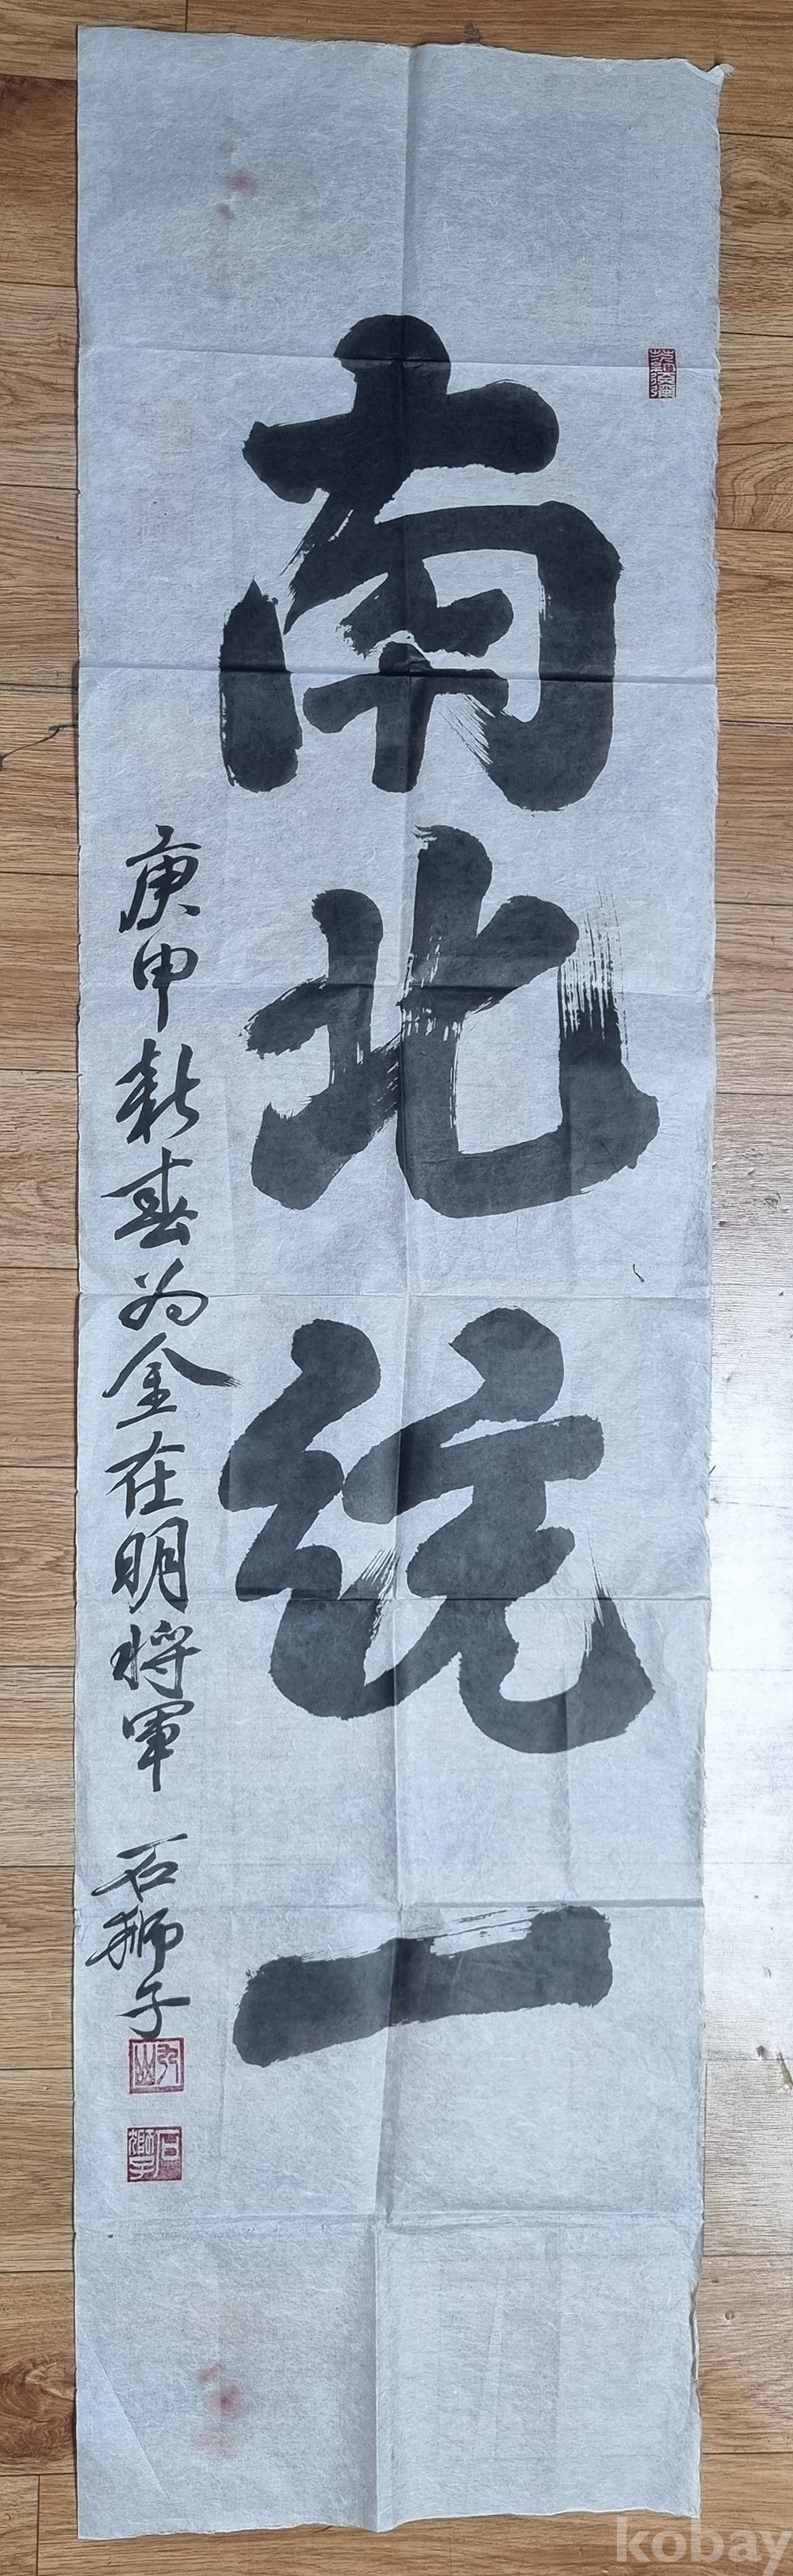 南北統一
庚申新春为金在明將軍 石獅子
kobay